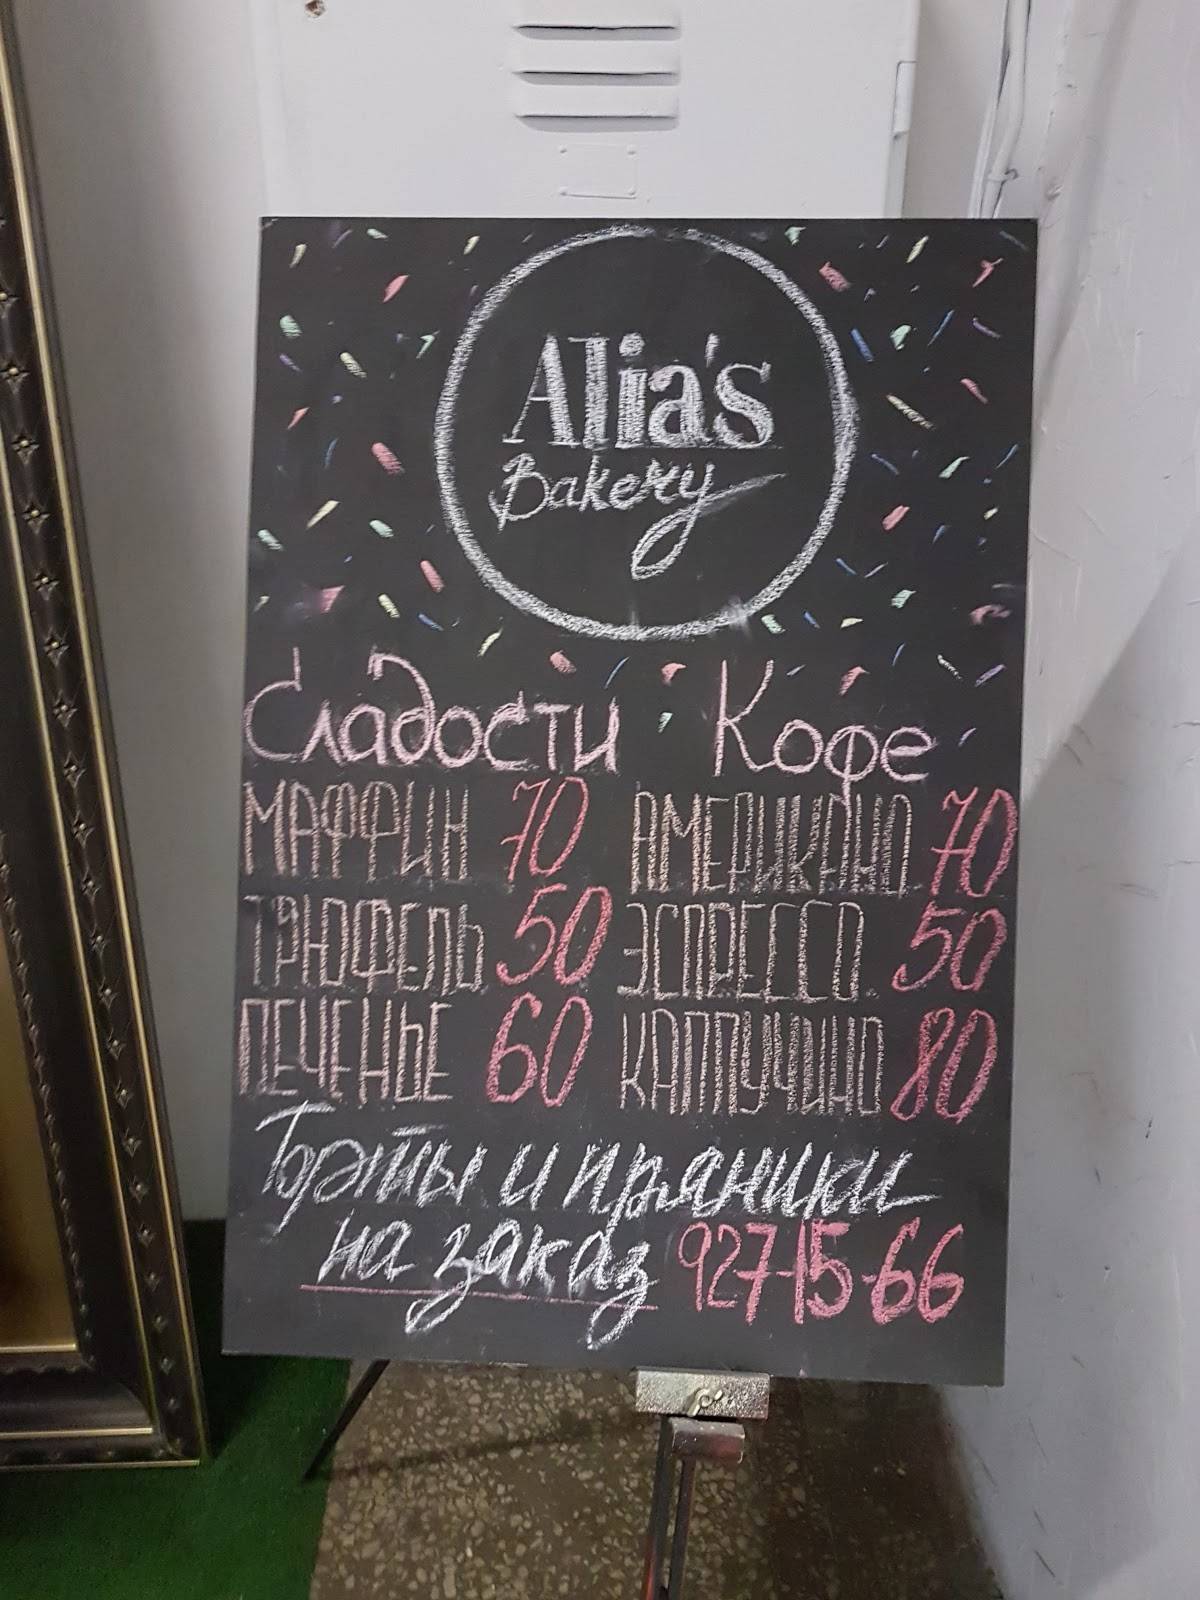 Alia's
Bakery
Сладости Кофе
МАФФИН 70 АМЕРИКАНО 70
ТРЮФЕЛЬ 50 ЭСПРЕССО 50
ПЕЧЕНЬЕ 60 КАППУЧИНО 80
Торты и пряники
на заказ 927-15-66